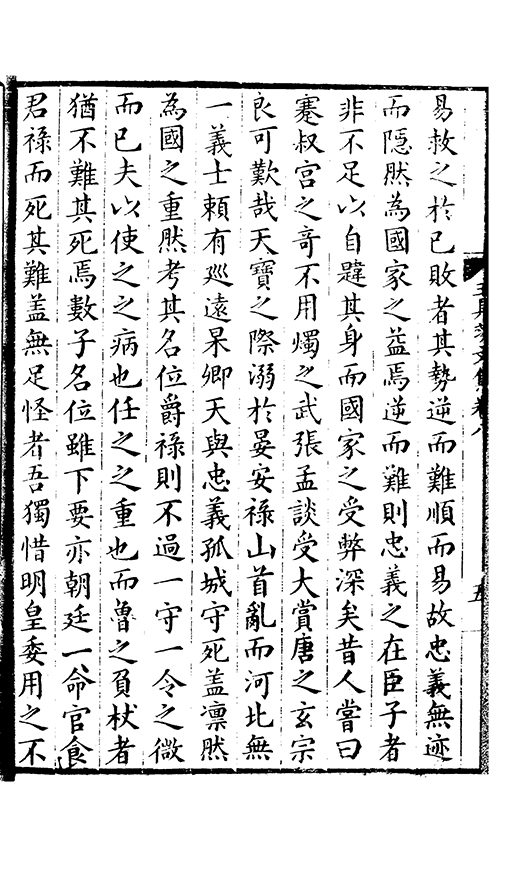 易救之於已敗者其勢逆而難順而易故忠義無迹
而隠然為國家之益焉逆而難則忠義之在臣子者
非不足以自韙其身而國家之受弊深矣昔人嘗曰
蹇叔宫之竒不用燭之武張孟談受大賞唐之玄宗
良可歎哉天寳之際溺於晏安祿山首亂而河北無
一義士頼有廵遠杲卿天與忠義孤城守死盖凛然
為國之重然考其名位爵祿則不過一守一令之微
而已夫以使之之病也任之之重也而魯之負杖者
猶不難其死焉數子名位雖下要亦朝廷一命官食
君祿而死其難盖無足怪者吾獨惜明皇委用之不